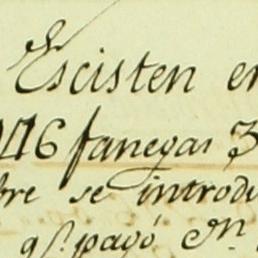 Escisten en
246 fanegas 3
bre se introdu
qᵉ pagó en